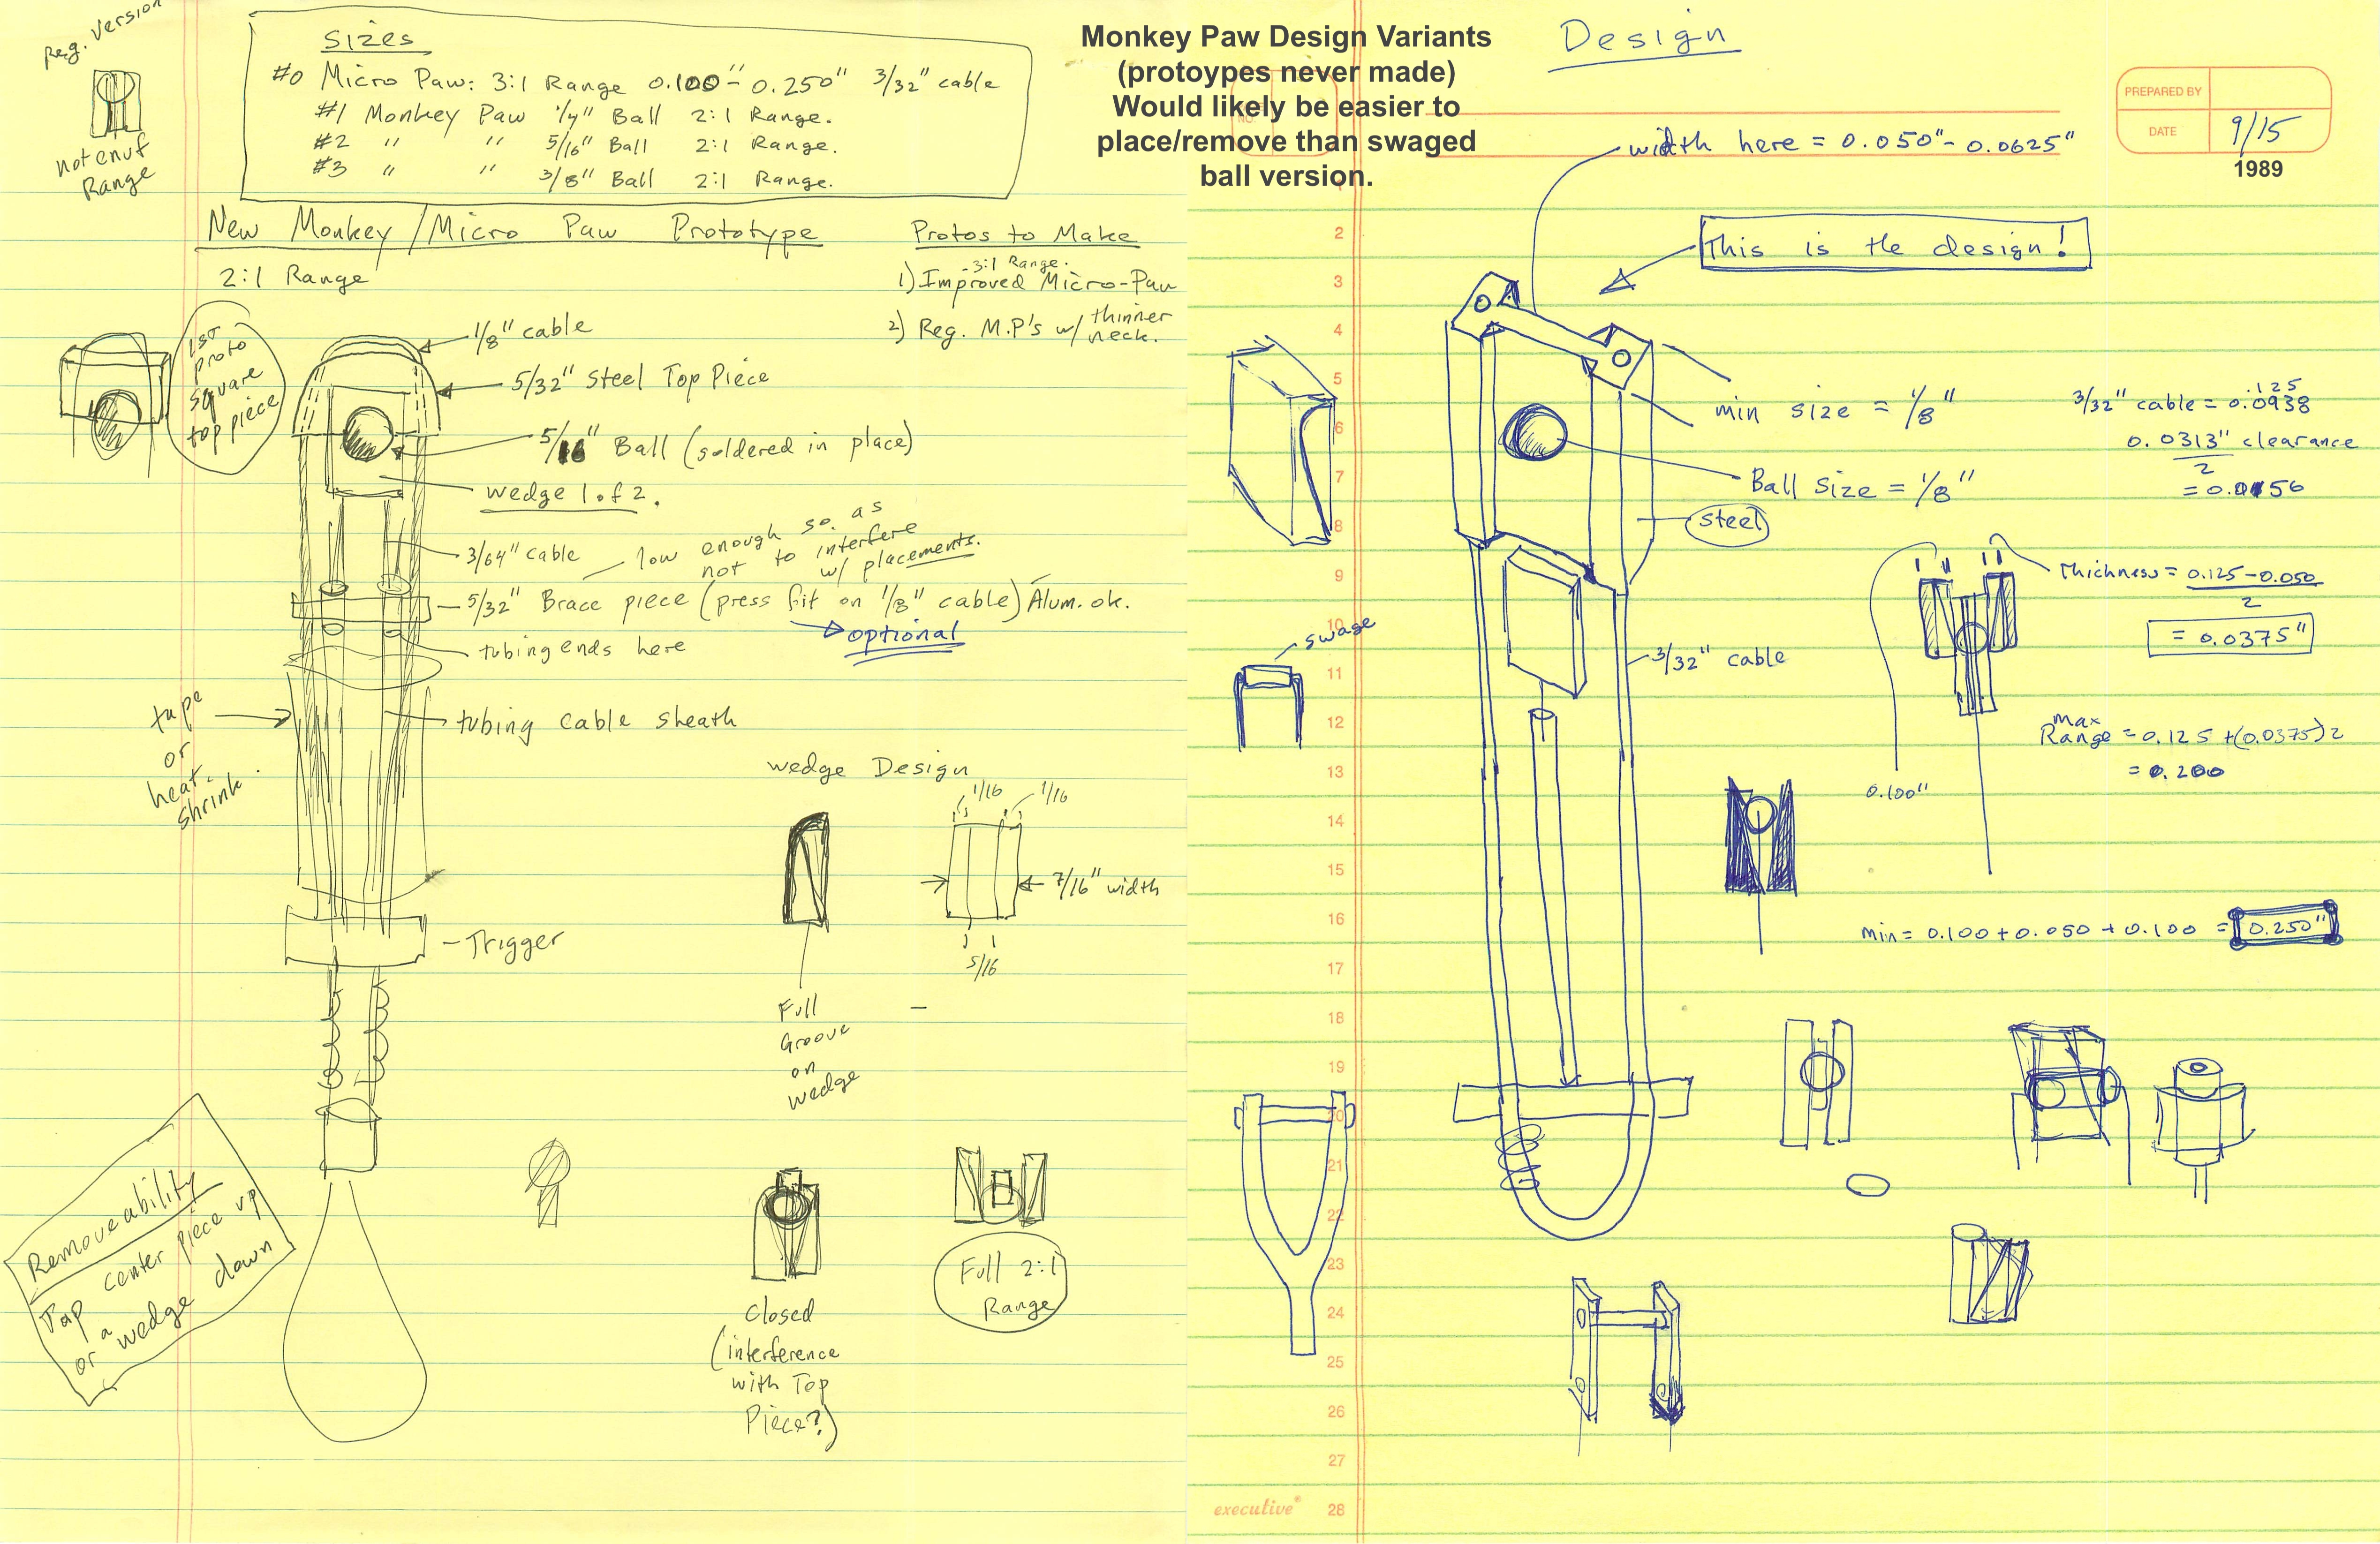 Reg. Version
not enuf
Range
Sizes
#0 Micro Paw: 3:1 Range 0.100" - 0.250" 3/32" cable
#1 Monkey Paw 1/4" Ball 2:1 Range.
#2 " " 5/16" Ball 2:1 Range.
#3 " " 3/8" Ball 2:1 Range.
New Monkey/Micro Paw Prototype
2:1 Range
Protos to Make
- 3:1 Range.
1) Improved Micro-Paw
2) Reg. M.P's w/ thinner
neck.
1st
proto
square
top piece
1/8" cable
5/32" Steel Top Piece
5/16" Ball (soldered in place)
wedge 1 of 2.
3/64" cable
low enough so as
not to interfere
w/ placements.
5/32" Brace piece (press fit on 1/8" cable) Alum. ok.
optional
tubing ends here
tape
or
heat
shrink.
tubing cable sheath
wedge Design
1/16 1/16
7/16" width
5/16
Full
Groove
on
wedge
Trigger
Removeability
Tap center piece up
or a wedge down
Closed
(interference
with Top
Piece?)
Full 2:1
Range
Monkey Paw Design Variants
(protoypes never made)
Would likely be easier to
place/remove than swaged
ball version.
Design
PREPARED BY
DATE 9/15
1989
width here = 0.050" - 0.0625"
This is the design!
min size = 1/8"
Ball size = 1/8"
steel
.125
3/32" cable = 0.0938
0.0313" clearance
2
= 0.0156
Thickness = 0.125 - 0.050
2
= 0.0375"
swage
3/32" cable
max
Range = 0.125 + (0.0375)2
= 0.200
0.100"
min = 0.100 + 0.050 + 0.100 = 0.250"
2
3
4
5
6
7
8
9
10
11
12
13
14
15
16
17
18
19
20
21
22
23
24
25
26
27
28
executive®